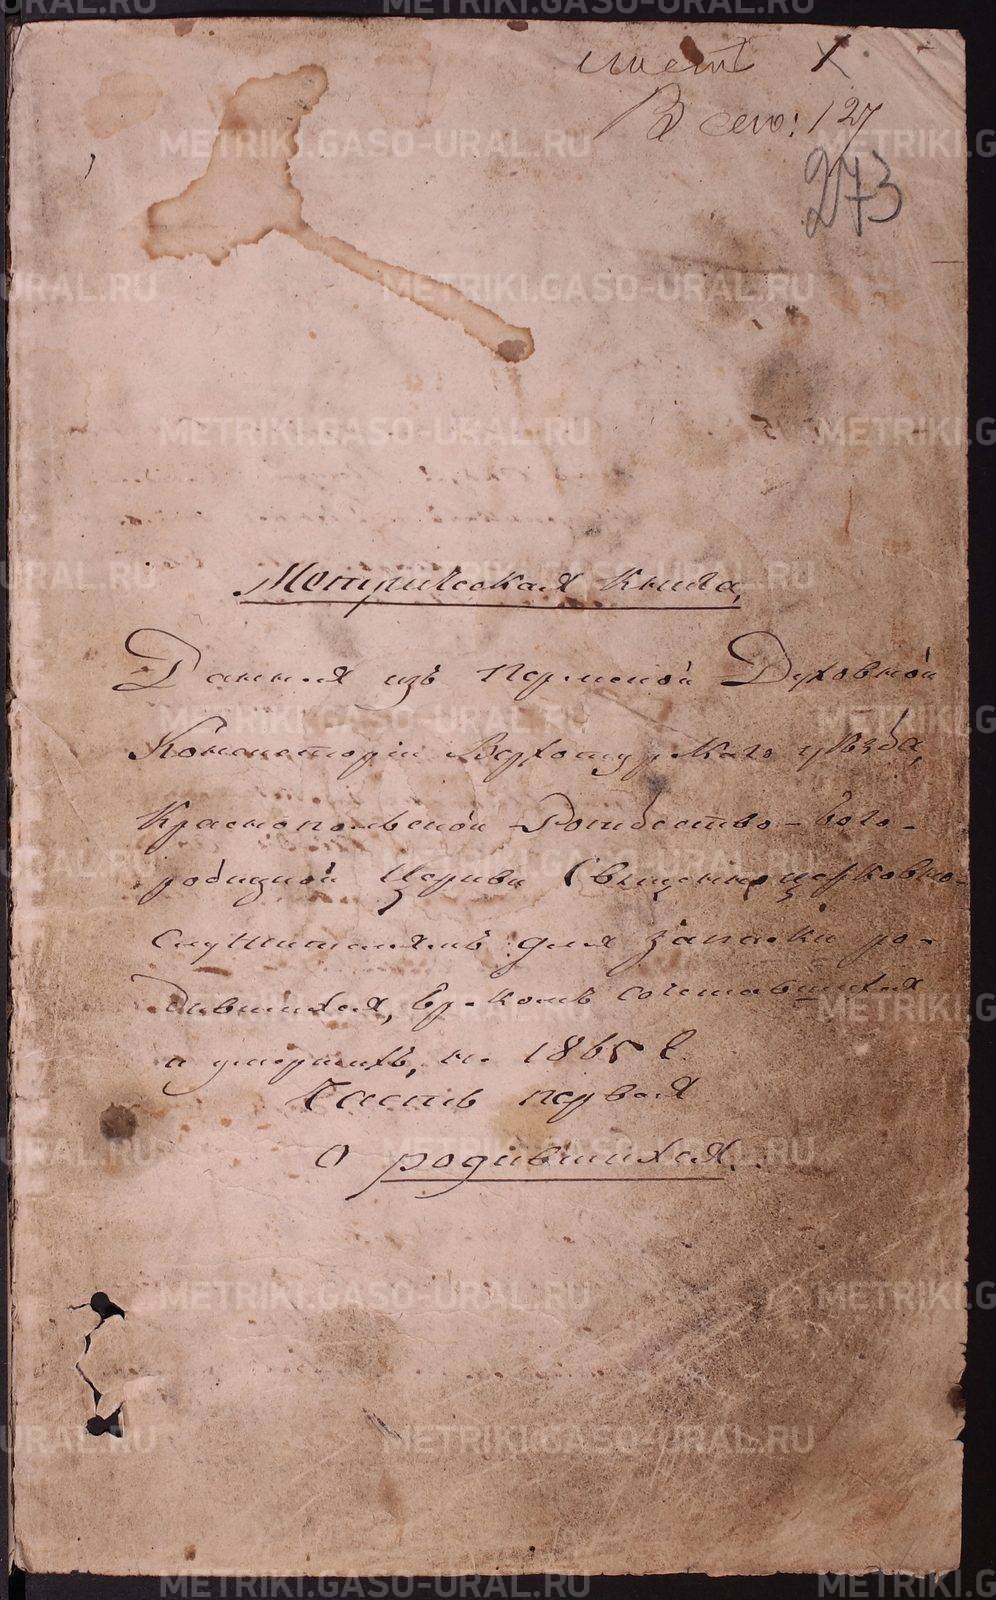 Всего: 127
273
Метрическая книга,
Данная изъ Пермской Духовной
Консисторіи Верхотурскаго уѣзда,
Краснопольской Рождество-Бого-
родицкой Церкви Священноцерковно-
служителямъ для записки ро-
дившихся, бракомъ сочетавшихся
и умершихъ, на 1865 г.
Часть первая
О родившихся.
METRIKI.GASO-URAL.RU